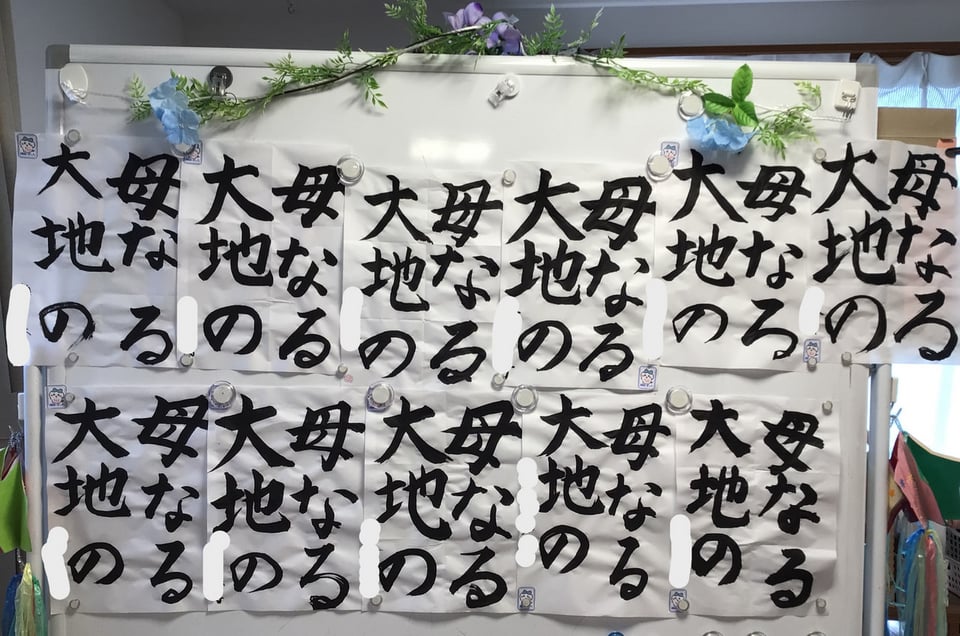 母なる
大地の
母なる
大地の
母なる
大地の
母なる
大地の
母なる
大地の
母なる
大地の
母なる
大地の
母なる
大地の
母なる
大地の
母なる
大地の
母なる
大地の